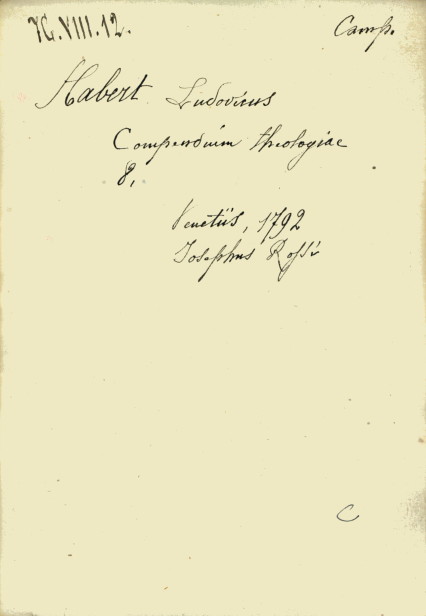 7G.VIII.12.
Camp.
Habert Ludovicus
Compendium theologiae
8,
Venetiis, 1792
Josephus Rossi
C